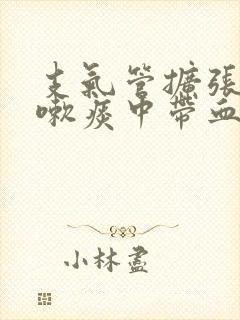 支氣管擴張
嗽痰中帶血
小林盡